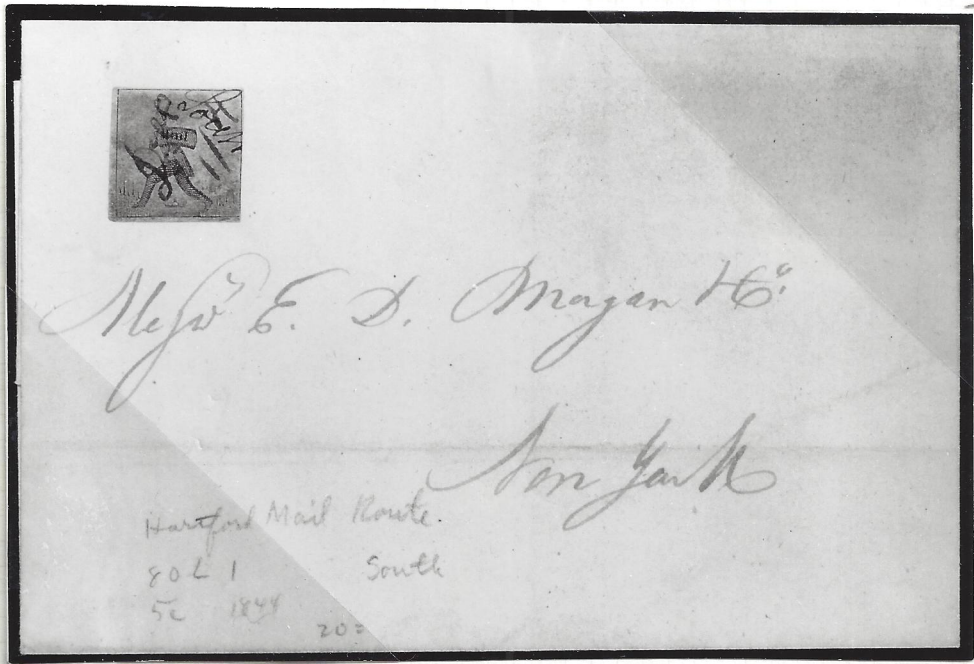 Mail
Messrs E. D. Morgan & Co.
New York
Hartford Mail Route
80 L 1 South
5c 1844
20=